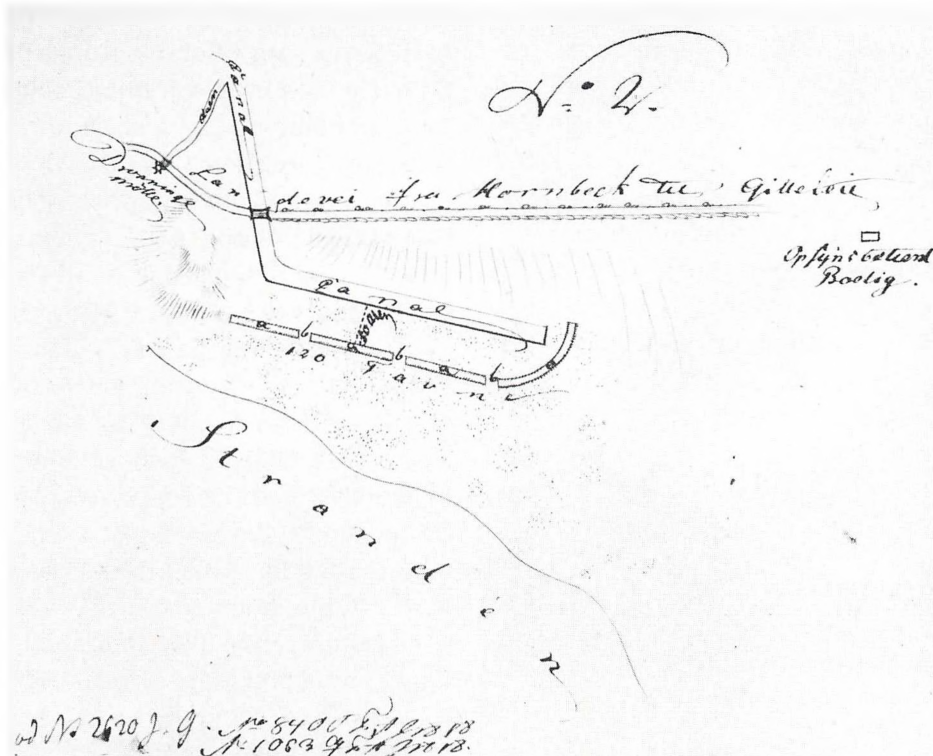 No. 2.
Canal
Dronning
Mölle
Landevei fra Hornbeck til Gilleleie
Opsijnsbetient
Boelig.
Canal
a b a b a b a
120 Favne
Stranden
ad No 2620 J. G. No 8400
No 1063